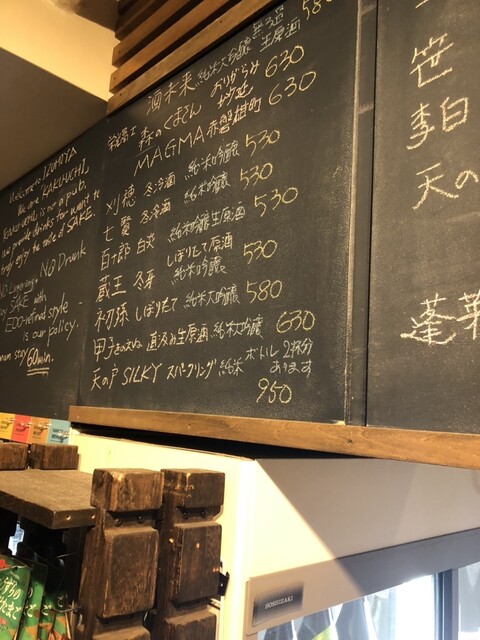 Welcome to IZUMIYA
We are "KAKU-UCHI"
KAKU-UCHI is not a pub.
provide drinks for
enjoy the taste of SAKE.
No Long-stay No Drunk
Enjoy SAKE with
EDO-refined style
is our policy.
can stay 60min.
酒未来 純米大吟醸 無濾過生原酒 580
栄光冨士 森のくまさん おりがらみ 630
MAGMA 赤磐雄町 630
刈穂 冬冷酒 純米吟醸 530
七賢 冬冷酒 純米吟醸 530
百十郎 白炎 純米吟醸生原酒 530
蔵王 冬芽 しぼりたて原酒 純米吟醸 530
初孫 しぼりたて 純米大吟醸 580
甲子きのえね 直汲み生原酒 純米大吟醸 630
天の戸 SILKY スパークリング 純米 ボトル 2杯分あります
950
笹
李白
天の
蓬莱
HOSHIZAKI
うずらのたまご